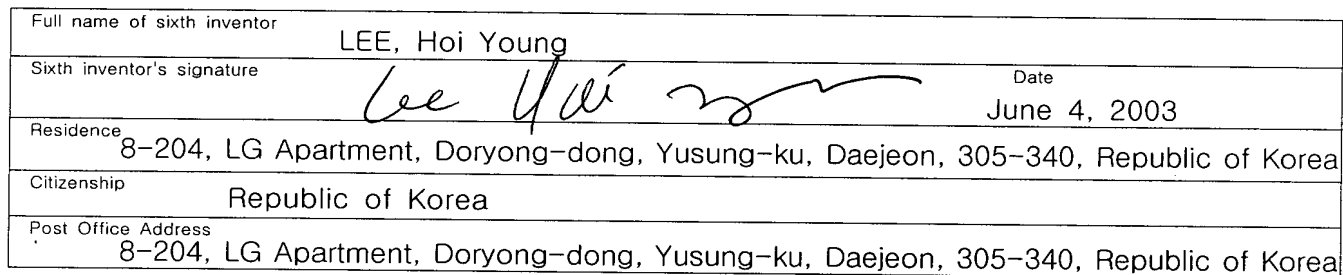 Full name of sixth inventor
LEE, Hoi Young
Sixth inventor's signature
Lee Hoi
Date
June 4, 2003
Residence
8-204, LG Apartment, Doryong-dong, Yusung-ku, Daejeon, 305-340, Republic of Korea
Citizenship
Republic of Korea
Post Office Address
8-204, LG Apartment, Doryong-dong, Yusung-ku, Daejeon, 305-340, Republic of Korea